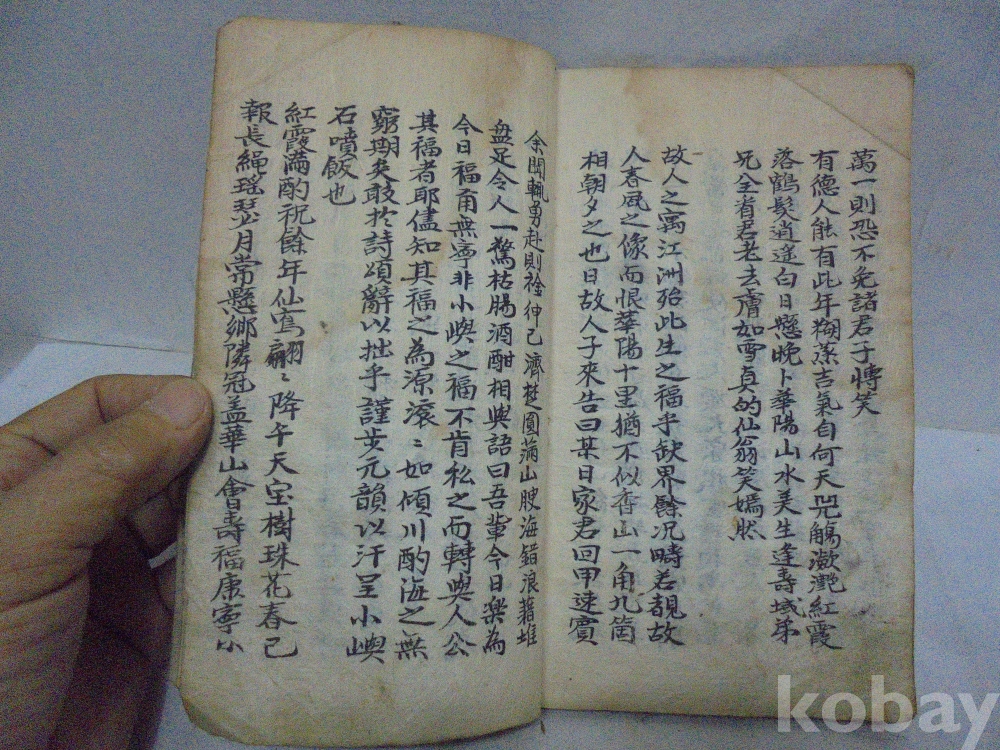 萬一則恐不免諸君子愽笑
有德人能有此年掬蒸吉氣自何天兕觴瀲灔紅霞
落鶴髮逍遥白日懸晚卜華陽山水美生逢壽域弟
兄全省君老去膚如雪貞的仙翁笑嫣然
故人之寓江洲殆此生之福乎缺界餘况疇若覩故
人春風之像而恨華陽十里猶不似香山一角九箇
相朝夕之也日故人子來告曰某日家君回甲速賓
余聞輒勇赴則衿紳已濟楚圓蒲山腴海錯浪藉堆
盘足令人一驚枯膓酒酣相與語曰吾輩今日樂為
今日福甫無寧非小嶼之福不肯私之而轉與人公
其福者耶儘知其福之為源滾〻如傾川酌海之無
窮期矣敢於詩頌辭以拙乎謹步元韻以汗呈小嶼
石噴飯也
紅霞滿酌祝餘年仙鶱翩〻降午天宝樹珠花春已
報長繩瑶琴月常懸鄉隣冠盖華山會壽福康寧小
kobay